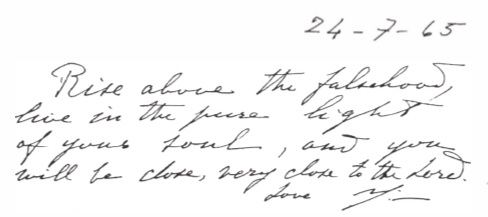 24-7-65
Rise above the falsehood,
live in the pure light
of your soul, and you
will be close, very close to the Lord.
Love